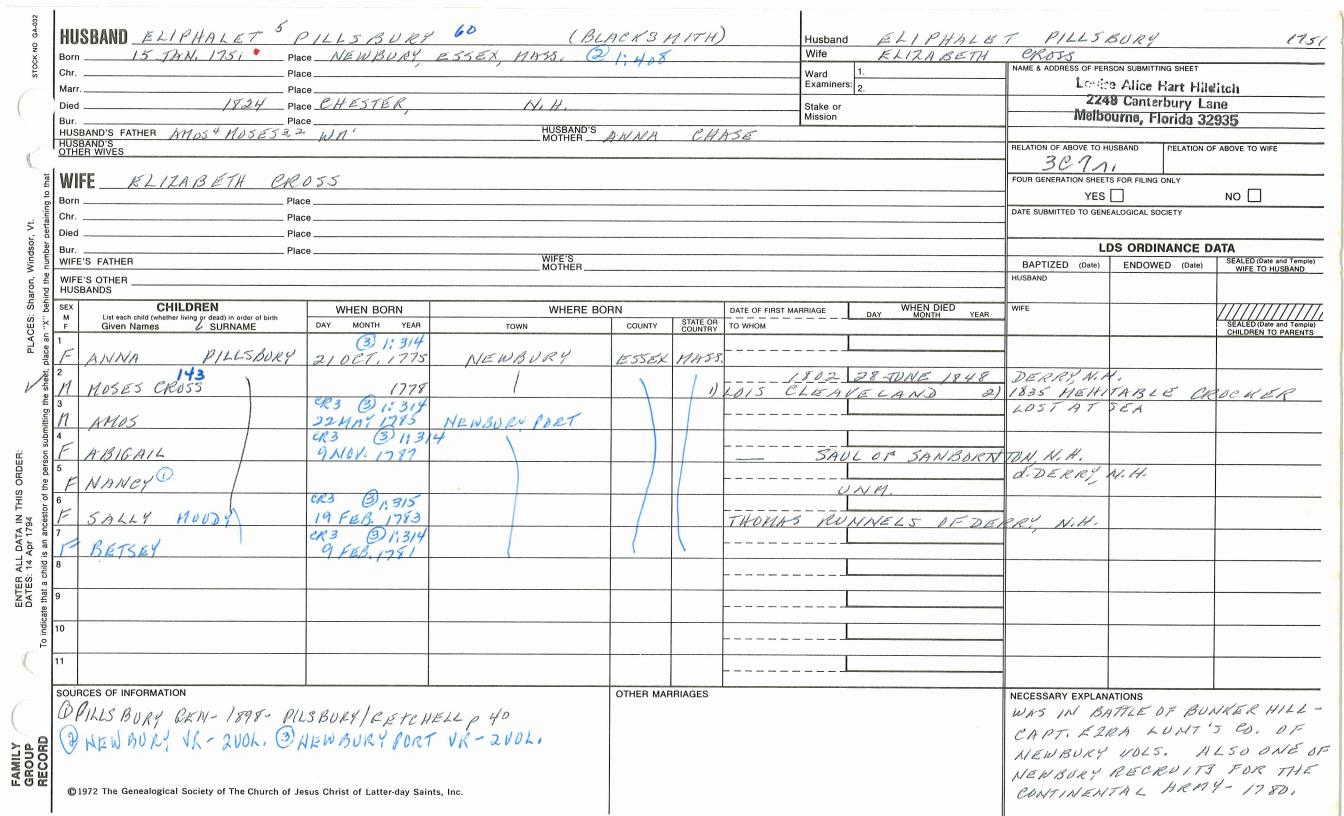 STOCK NO GA-032
HUSBAND ELIPHALET 5 PILLSBURY 60 (BLACKSMITH)
Born 15 JAN. 1751 Place NEWBURY, ESSEX, MASS. ② 1:408
Chr. Place
Marr. Place
Died 1824 Place CHESTER, N.H.
Bur. Place
HUSBAND'S FATHER AMOS4 MOSES3,2 WM1 HUSBAND'S MOTHER ANNA CHASE
HUSBAND'S OTHER WIVES
Husband ELIPHALET PILLSBURY 1751
Wife ELIZABETH CROSS
Ward Examiners: 1.
2.
Stake or Mission
NAME & ADDRESS OF PERSON SUBMITTING SHEET
Louise Alice Hart Hilditch
2248 Canterbury Lane
Melbourne, Florida 32935
RELATION OF ABOVE TO HUSBAND RELATION OF ABOVE TO WIFE
3C7r.
FOUR GENERATION SHEETS FOR FILING ONLY
YES NO
DATE SUBMITTED TO GENEALOGICAL SOCIETY
WIFE ELIZABETH CROSS
Born Place
Chr. Place
Died Place
Bur. Place
WIFE'S FATHER WIFE'S MOTHER
WIFE'S OTHER HUSBANDS
LDS ORDINANCE DATA
BAPTIZED (Date) ENDOWED (Date) SEALED (Date and Temple) WIFE TO HUSBAND
HUSBAND
WIFE
SEALED (Date and Temple) CHILDREN TO PARENTS
SEX M F CHILDREN WHEN BORN WHERE BORN DATE OF FIRST MARRIAGE WHEN DIED
List each child (whether living or dead) in order of birth
Given Names SURNAME DAY MONTH YEAR TOWN COUNTY STATE OR COUNTRY TO WHOM DAY MONTH YEAR
1 ③ 1:314
F ANNA PILLSBURY 21 OCT. 1775 NEWBURY ESSEX MASS.
2 143 1802 28 JUNE 1848 DERRY, N.H.
M MOSES CROSS 1778 1) LOIS CLEAVELAND 2) 1835 MEHITABLE CROCKER
3 CR3 ③ 1:314 LOST AT SEA
M AMOS 22 MAY 1785 NEWBURYPORT
4 CR3 ③ 1:314
F ABIGAIL 9 NOV. 1787 SAUL OF SANBORNTON, N.H.
5 d. DERRY, N.H.
F NANCY ① UNM.
6 CR3 ③ 1:315
F SALLY MOODY 19 FEB. 1783 THOMAS RUNNELS OF DERRY, N.H.
7 CR3 ③ 1:314
F BETSEY 9 FEB. 1781
8
9
10
11
SOURCES OF INFORMATION
① PILLSBURY GEN- 1898- PILSBURY/GETCHELL p 40
② NEWBURY VR-2VOL. ③ NEWBURYPORT VR-2VOL.
©1972 The Genealogical Society of The Church of Jesus Christ of Latter-day Saints, Inc.
OTHER MARRIAGES
NECESSARY EXPLANATIONS
WAS IN BATTLE OF BUNKER HILL-
CAPT. EZRA LUNT'S CO. OF
NEWBURY VOLS. ALSO ONE OF
NEWBURY RECRUITS FOR THE
CONTINENTAL ARMY- 1780.
FAMILY GROUP RECORD
ENTER ALL DATA IN THIS ORDER:
DATES: 14 Apr 1794
PLACES: Sharon, Windsor, Vt.
To indicate that a child is an ancestor of the person submitting the sheet, place an "X" behind the number pertaining to that